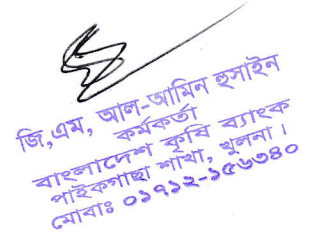 জি,এম, আল-আমিন হুসাইন
কর্মকর্তা
বাংলাদেশ কৃষি ব্যাংক
পাইকগাছা শাখা, খুলনা।
মোবাঃ ০১৭১২-১৫৬৬৪০